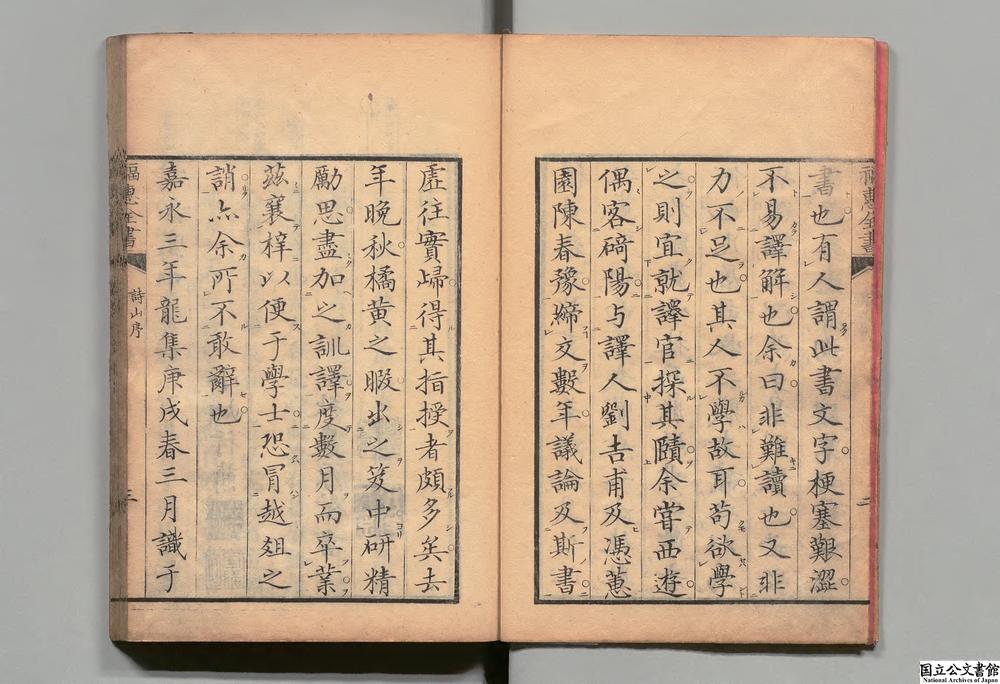 書也有人謂此書文字梗塞艱澀
不易譯解也余曰非難讀也又非
力不足也其人不學故耳苟欲學
之則宜就譯官探其賾余嘗西遊
偶客碕陽与譯人劉吉甫及馮蕙
園陳春豫締交數年議論及斯書
二
虛往實歸得其指授者頗多矣去
年晚秋橘黃之暇出之笈中研精
勵思盡加之訓譯度數月而卒業
茲襄梓以便于學士恐冒越俎之
誚亦余所不敢辭也
嘉永三年龍集庚戌春三月識于
福惠全書
詩山序
三
国立公文書館
National Archives of Japan